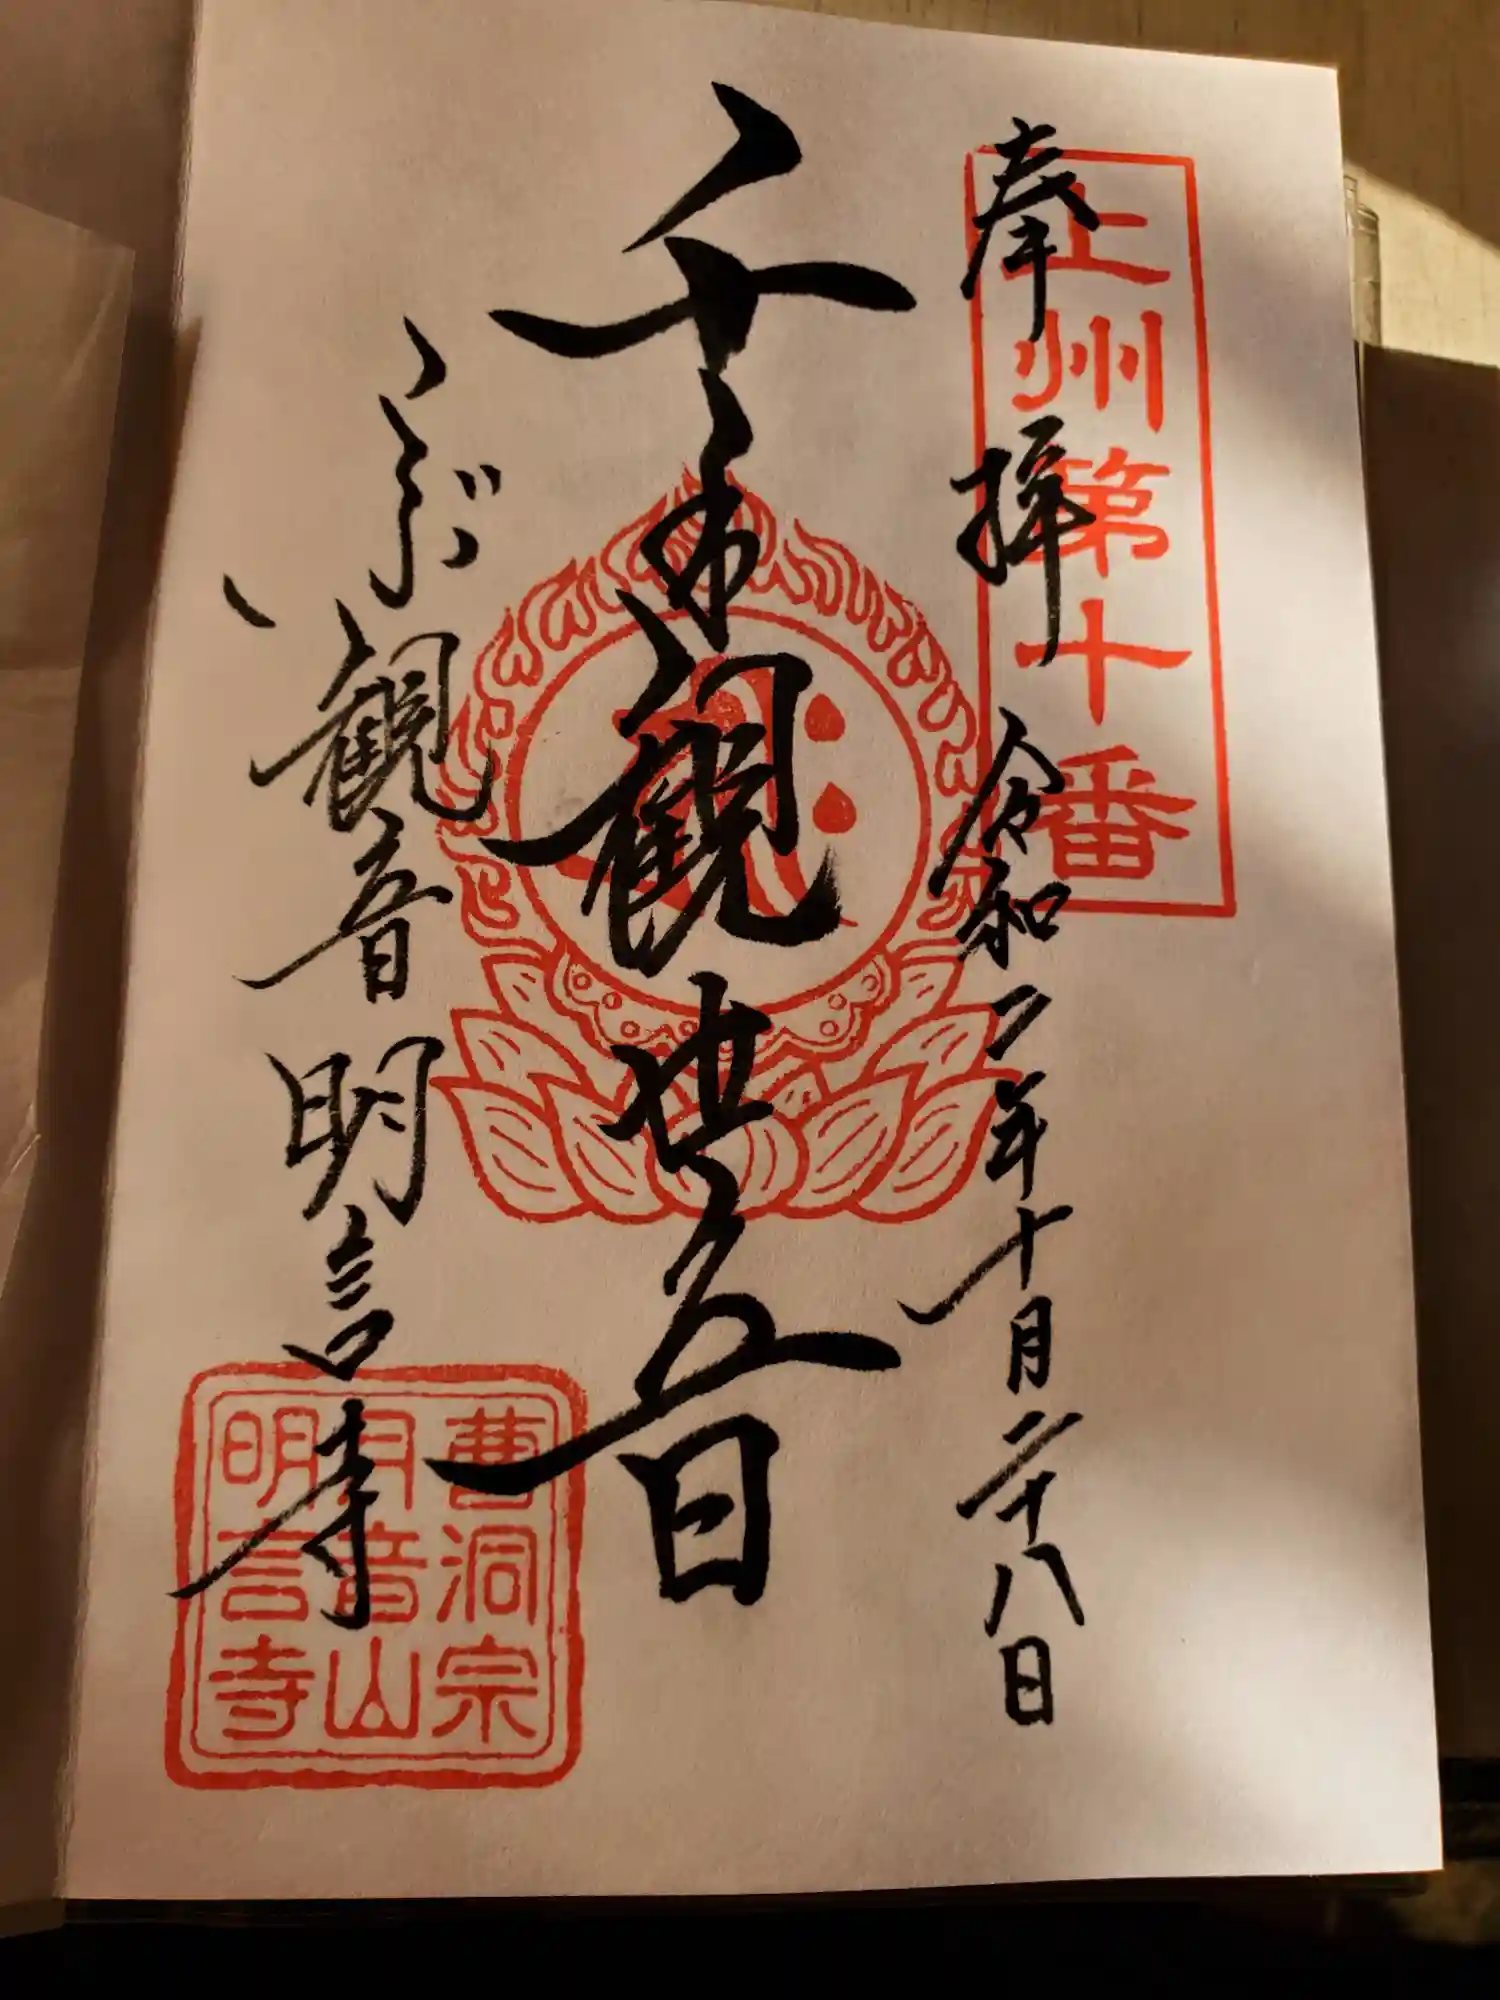 上州第十番
奉拝 令和二年十月二十八日
千手観世音
こぶ観音明言寺
曹洞宗
音山
明言寺